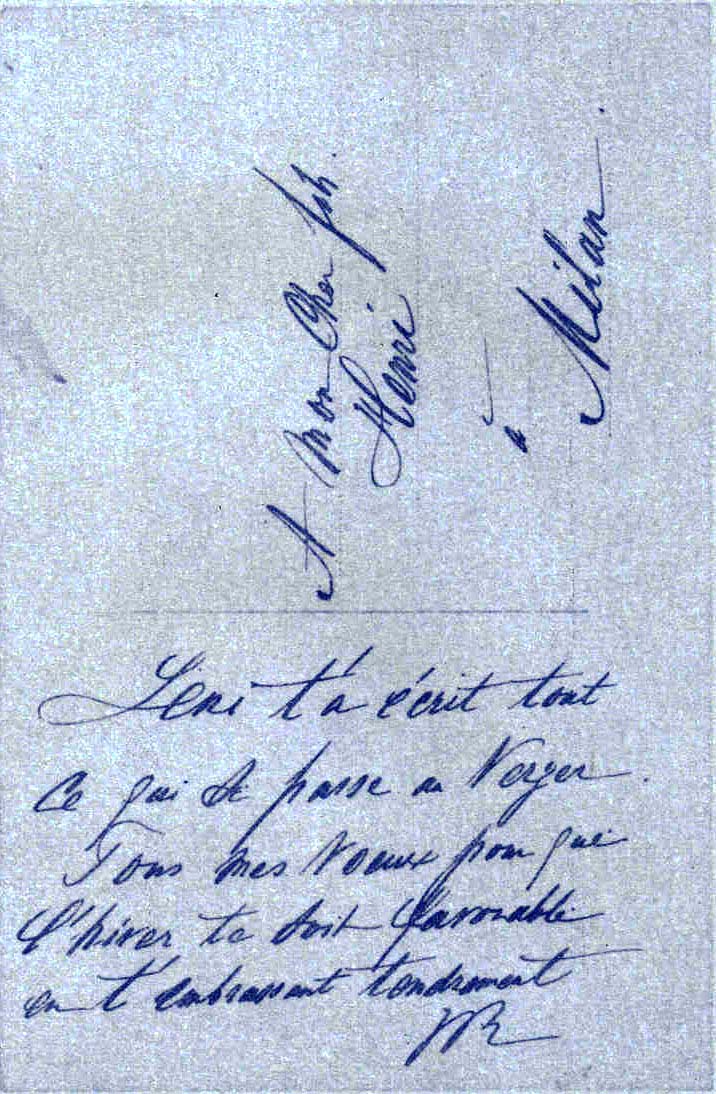 A mon Cher fils.
Henri
à
Milan.
Leni t'a écrit tout
ce qui se passe au Verger.
Tous mes voeux pour que
l'hiver te soit favorable
en t'embrassant tendrement